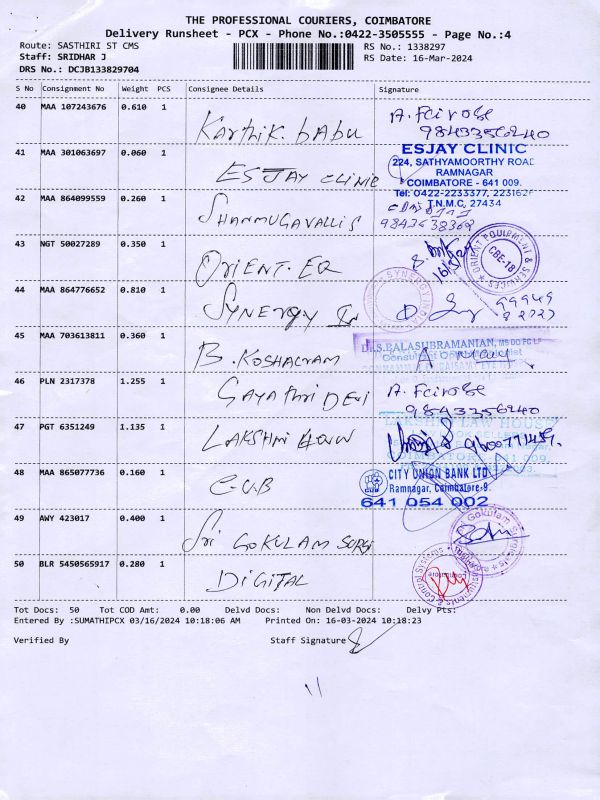 THE PROFESSIONAL COURIERS, COIMBATORE
Delivery Runsheet - PCX - Phone No.:0422-3505555 - Page No.:4
Route: SASTHIRI ST CMS RS No.: 1338297
Staff: SRIDHAR J RS Date: 16-Mar-2024
DRS No.: DCJB133829704
S No Consignment No Weight PCS Consignee Details Signature
40 MAA 107243676 0.610 1 Karthik. babu A. Feirose
9843356240
41 MAA 301063697 0.060 1 ESJAY CLINIC ESJAY CLINIC
224, SATHYAMOORTHY ROAD
RAMNAGAR
COIMBATORE - 641 009.
Tel: 0422-2233377, 2231626
T.N.M.C. 27434
42 MAA 864099559 0.260 1 SHANMUGAVALLIS
9843638368
43 NGT 50027289 0.350 1 ORIENT. EQ
16/3/24
ORIENT EQUIPMENTS & SERVICES
CBE-18
44 MAA 864776652 0.810 1 SYNERGY IN
SYNERGY INDIA
45 MAA 703613811 0.360 1 B. KOSHALRAM
S.BALASUBRAMANIAN, MS DO FC LF
46 PLN 2317378 1.255 1 GAYATHRI DEVI A. Feirose
9843356240
47 PGT 6351249 1.135 1 LAKSHMI HOUSE
LAKSHMI LAW HOUSE
48 MAA 865077736 0.160 1 C.U.B CITY UNION BANK LTD
Ramnagar, Coimbatore-9.
641 054 002
49 AWY 423017 0.400 1 Sri GOKULAM SURGI
Gokulam Surgicals
50 BLR 5450565917 0.280 1 DIGITAL
Tot Docs: 50 Tot COD Amt: 0.00 Delvd Docs: Non Delvd Docs: Delvy Pts:
Entered By :SUMATHIPCX 03/16/2024 10:18:06 AM Printed On: 16-03-2024 10:18:23
Verified By Staff Signature